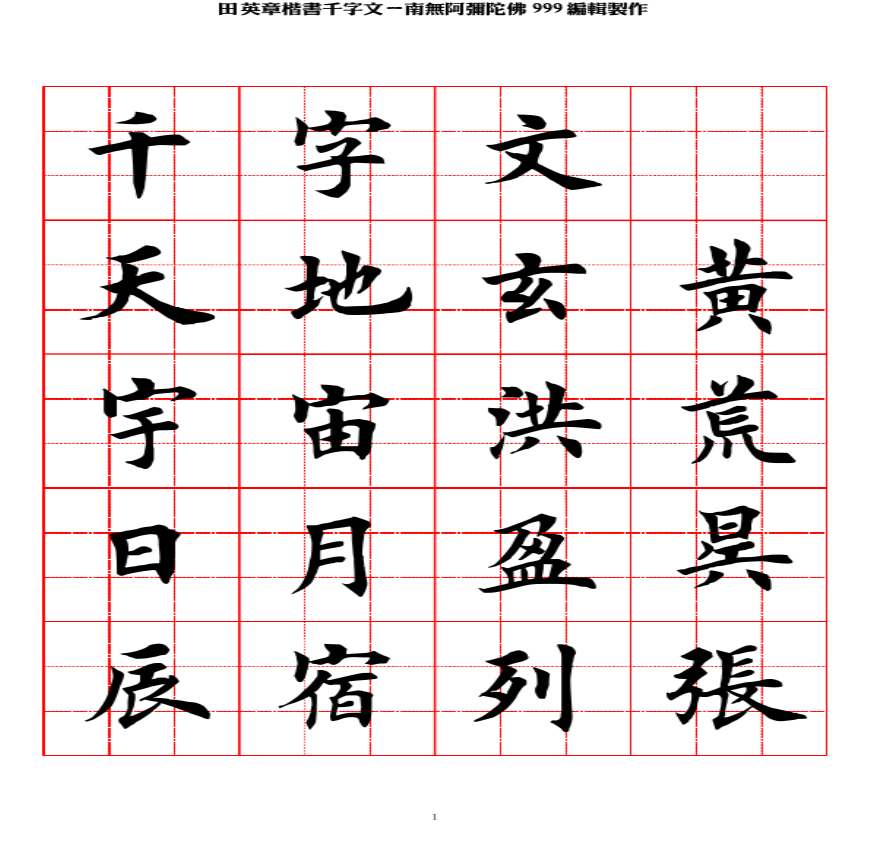 田英章楷書千字文－南無阿彌陀佛 999 編輯製作
千字文
天地玄黃
宇宙洪荒
日月盈昃
辰宿列張
1